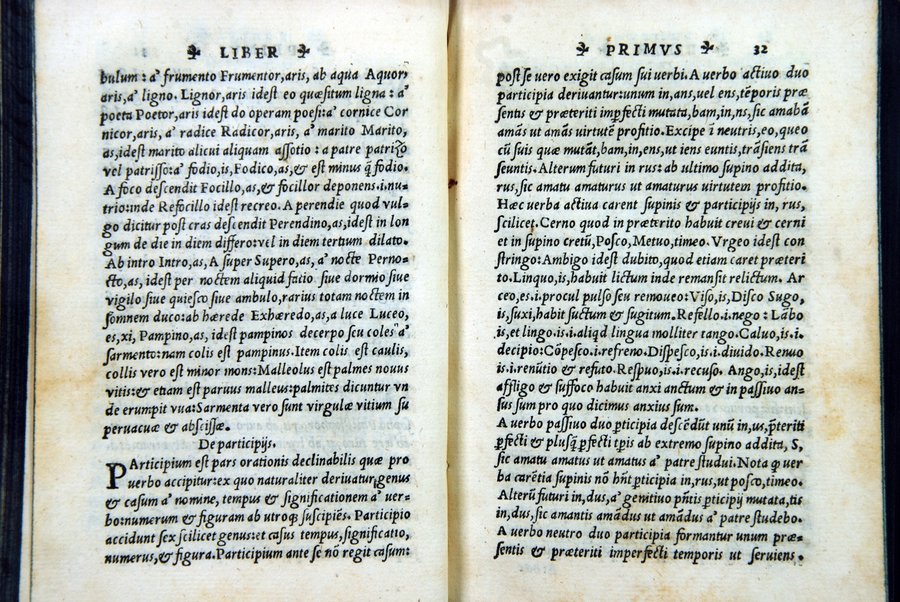 LIBER
bulum : a' frumento Frumentor, aris, ab aqua Aquor,
aris, a' ligno. Lignor, aris idest eo quæsitum ligna : a'
poeta Poetor, aris idest do operam poesi: a' cornice Cor
nicor, aris, a' radice Radicor, aris, a' marito Marito,
as, idest marito alicui aliquam assotio : a patre patrizo
vel patrisso: a' fodio, is, Fodico, as, & est minus q̃ fodio.
A foco descendit Focillo, as, & focillor deponens .i. nu-
trio: inde Refocillo idest recreo. A perendie quod vul-
go dicitur post cras descendit Perendino, as, idest in lon
gum de die in diem differo: vel in diem tertium dilato.
Ab intro Intro, as, A super Supero, as, a' nocte Perno-
cto, as, idest per noctem aliquid facio siue dormio siue
vigilo siue quiesco siue ambulo, rarius totam noctem in
somnem duco: ab hærede Exhæredo, as, a luce Luceo,
es, xi, Pampino, as, idest pampinos decerpo seu coles a'
sarmento: nam colis est pampinus. Item colis est caulis,
collis vero est minor mons: Malleolus est palmes nouus
vitis: & etiam est paruus malleus: palmites dicuntur vn
de erumpit vua: Sarmenta vero sunt virgulæ vitium su
peruacuæ & abscissæ.
De participijs.
PArticipium est pars orationis declinabilis quæ pro
verbo accipitur: ex quo naturaliter deriuatur, genus
& casum a' nomine, tempus & significationem a' uer-
bo: numerum & figuram ab utroq; suscipiẽs. Participio
accidunt sex scilicet genus: et casus tempus, significatio,
numerus, & figura. Participium ante se nõ regit casum:
PRIMVS 32
post se uero exigit casum sui uerbi. A uerbo actiuo duo
participia deriuantur: unum in, ans, uel ens, tẽporis præ
sentis & præteriti imp̃fecti mutata, bam, in, ns, sic amabã
amãs ut amãs virtutẽ profitio. Excipe ĩ neutris, eo, queo
cũ suis quæ mutãt, bam, in, ens, ut iens euntis, trãsiens trã
seuntis. Alterum futuri in rus: ab ultimo supino addita,
rus, sic amatu amaturus ut amaturus virtutem profitio.
Hæc uerba actiua carent supinis & participijs in, rus,
scilicet. Cerno quod in præterito habuit creui & cerni
et in supino cretũ, Posco, Metuo, timeo. Vrgeo idest con
stringo: Ambigo idest dubito, quod etiam caret præteri
to. Linquo, is, habuit lictum inde remansit relictum. Ar
ceo, es .i. procul pulso seu remoueo: Viso, is, Disco Sugo,
is, suxi, habit suctum & sugitum. Refello .i. nego : Lãbo
is, et lingo .is .i. aliqd lingua molliter tango. Caluo, is .i.
decipio: Cõpesco .i. refreno. Dispesco, is .i. diuido. Renuo
is .i. renũtio & refuto. Respuo, is .i. recuso. Ango, is, idest
affligo & suffoco habuit anxi anctum & in passiuo an-
sus sum pro quo dicimus anxius sum.
A uerbo passiuo duo p̃ticipia descẽdũt unũ in, us, p̃teriti
p̃fecti & plusq̃ p̃fecti tp̃is ab extremo supino addita, S,
sic amatu amatus ut amatus a' patre studui. Nota ꝙ uer
ba carẽtia supinis nõ hñt p̃ticipia in, rus, ut posco, timeo.
Alterũ futuri in, dus, a' genitiuo p̃ntis p̃ticipij mutata, tis
in, dus, sic amantis amãdus ut amãdus a' patre studebo.
A uerbo neutro duo participia formantur unum præ-
sentis & præteriti imperfecti temporis ut seruiens.